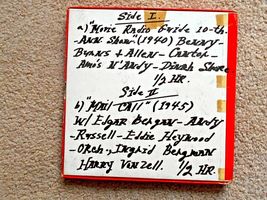 Side I.
a) "Movie Radio Guide 10-th.
Ann. Show" (1940) Benny-
Burns & Allen-Cantor-
Amos N'Andy-Dinah Shore
1/2 HR.
Side II
b) "Mail Call" (1945)
W/ Edgar Bergen-Andy-
Russell-Eddie Heywood
-Orch., Ingrid Bergman
Harry Von Zell. 1/2 HR.